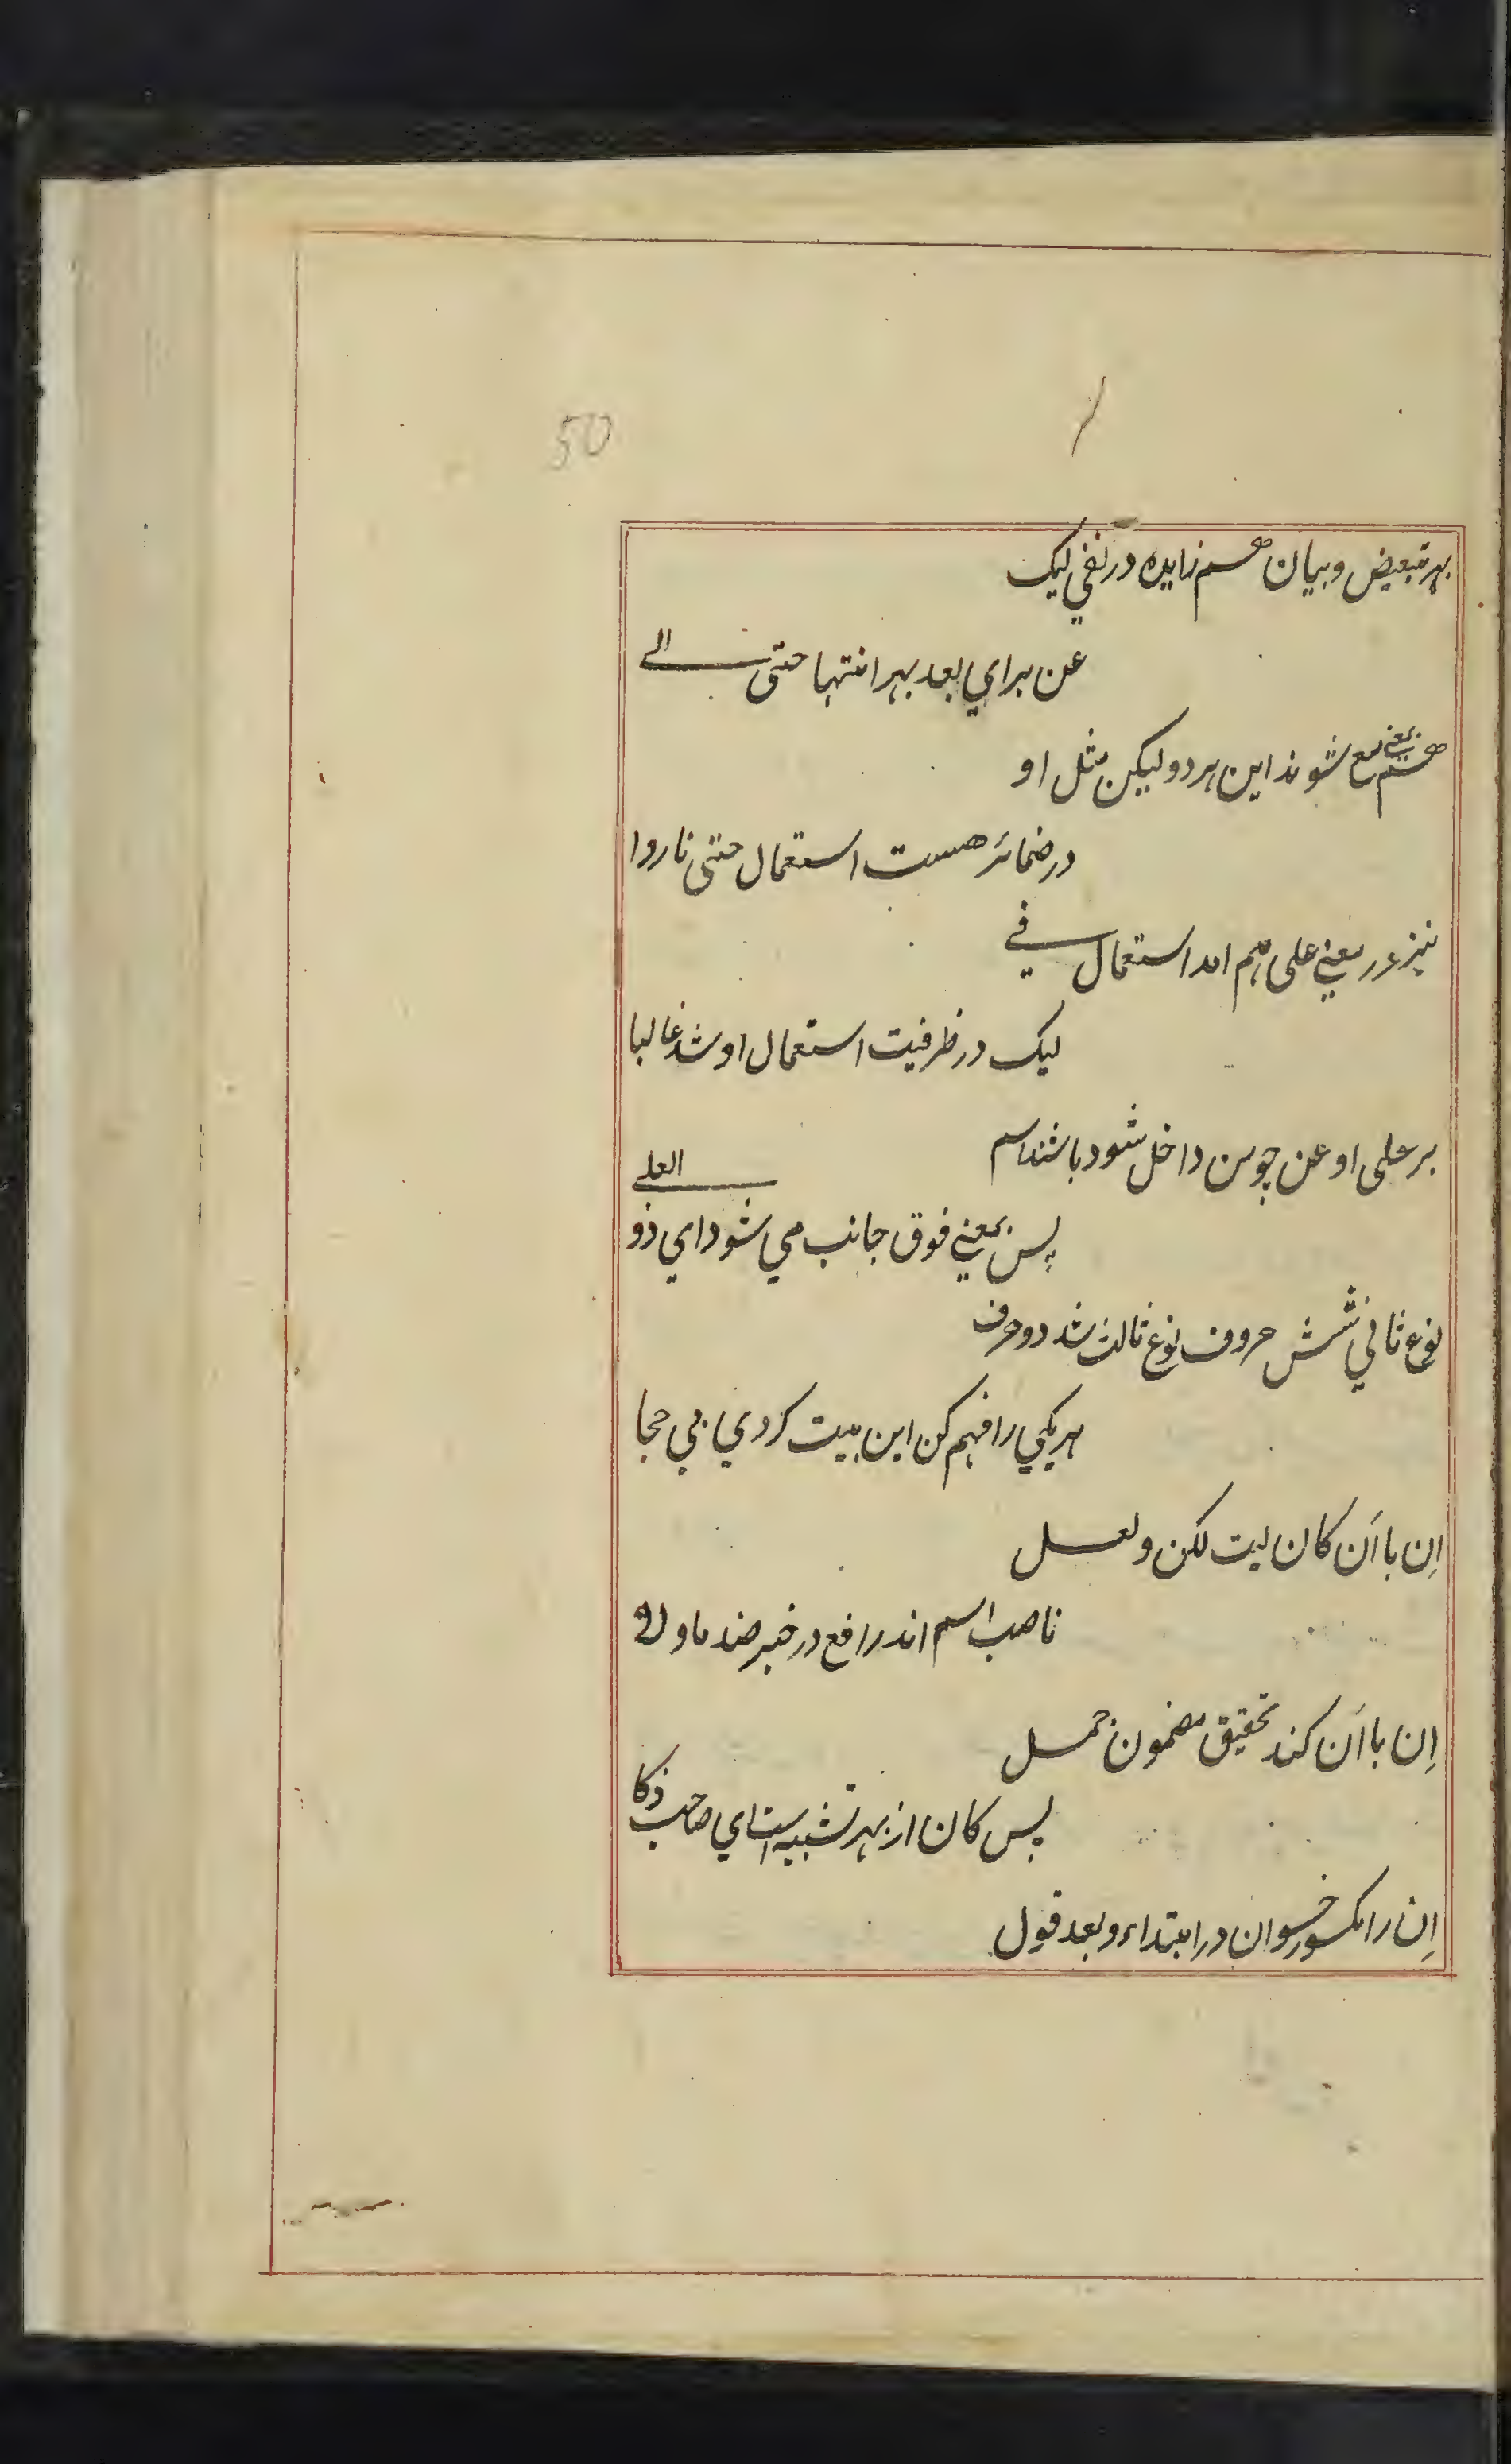 50
بهر تبعیض و بیان هم زایده در نفی لیک
عن برای بعد بهر انتها حتی الے
هم بمعنی مع شوند این هر دو لیکن مثل او
در ضمائر هست استعمال حتی ناروا
نیز در معنی علی هم امد استعمال فے
لیک در ظرفیت استعمال او شد غالبا
بر علی او عن چو من داخل شود باشند اسم
پس بمعنی فوق جانب می شود ای ذو العلے
نوع ثانی شش حروف نوع ثالث شد دو حرف
هر یکی را فهم کن این بیت کردی بی حجا
اِن با اَن کان لیت لکن و لعل
ناصب اسم اند رافع در خبر ضد ما و لا
اِن با اَن کند تحقیق مضمون جمل
پس کان از بهر تشبیه است ای صاحب ذکا
اِن را مکسور خوان در ابتداء و بعد قول